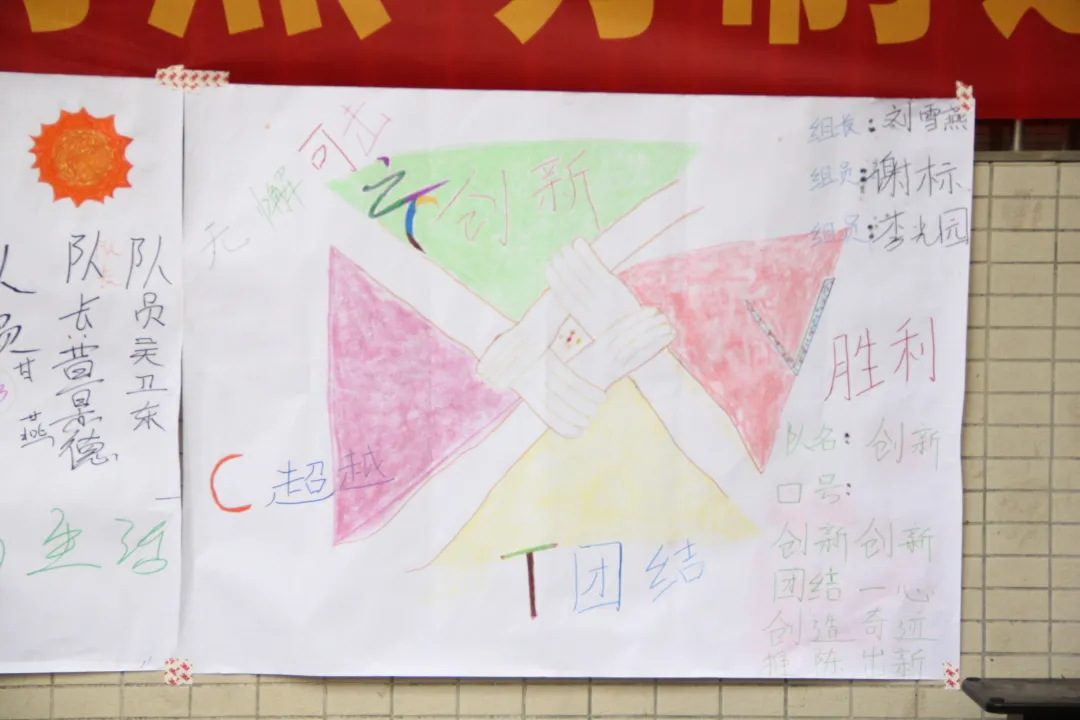 队员吴卫东
队长普景德
燕
生活
无懈可击
创新
C 超越
T 团结
V
胜利
组长:刘雪燕
组员:谢标
组员:李光园
队名:创新
口号:
创新创新
团结一心
创造奇迹
推陈出新